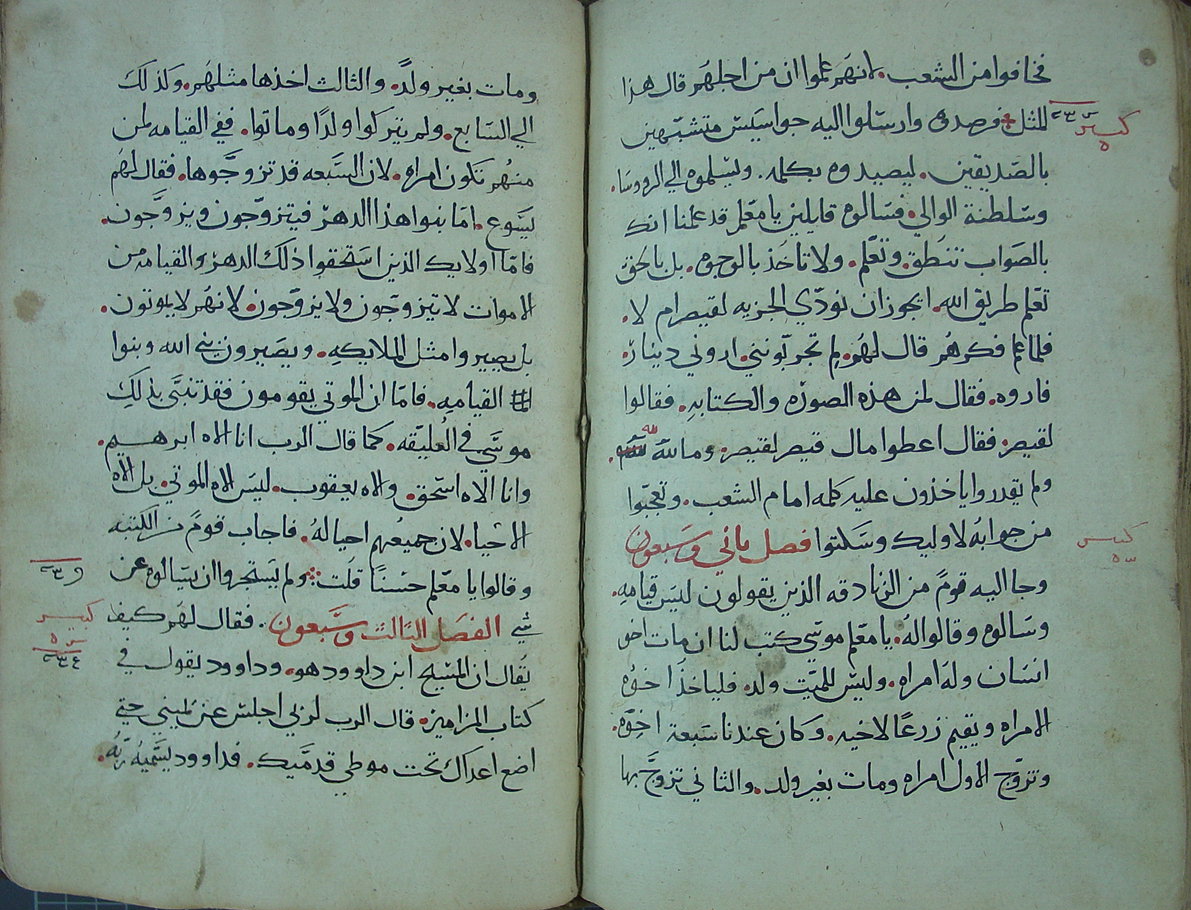 فخافوا من الشعب. لانهم علموا ان من اجلهم قال هذا
المثل فرصدوه وارسلوا اليه جواسيس متشبهين
بالصديقين. ليصيدوه بكلمه. ويسلموه الي الرووسا.
وسلطنة الوالي. فسالوه قايلين يا معلم قد علمنا انك
بالصواب تنطق. وتعلم. ولا تاخذ بالوجوه. بل بالحق
تعلم طريق الله. ايجوز ان نودي الجزيه لقيصر ام لا.
فلما علم فكرهم قال لهم. لم تجربونني. اروني دينار.
فاروه. فقال لمن هذه الصوره والكتابه. فقالوا
لقيصر. فقال اعطوا مال قيصر لقيصر. وما لله لله.
ولم يقدروا ياخذون عليه كلمه امام الشعب. وتعجبوا
من جوابه لاوليك وسكتوا فصل ثاني وسبعون
وجا اليه قوم من الزنادقه الذين يقولون ليس قيامه.
وسالوه وقالوا له. يا معلم موسي كتب لنا ان مات اخو
انسان وله امراه. وليس للميت ولد. فلياخذ اخوه
الامراه ويقيم زرعا لاخيه. وكان عندنا سبعة اخوه.
وتزوج الاول امراه ومات بغير ولد. والثاني تزوج بها
ومات بغير ولد. والثالث اخذها مثلهم. وكذلك
الي السابع. ولم يتركوا ولدا وماتوا. ففي القيامه لمن
منهم تكون امراه. لان السبعه قد تزوجوها. فقال لهم
يسوع. اما بنوا هذا الدهر فيتزوجون ويزوجون.
فاما اولايك الذين استحقوا ذلك الدهر والقيامه من
الاموات لا يتزوجون ولا يزوجون. لانهم لا يموتون.
بل يصيروا مثل الملايكه. ويصيرون بني الله وبنوا
القيامه. فاما ان الموتي يقومون فقد تنبي بذلك
موسي في العليقه. كما قال الرب انا الاه ابرهيم.
وانا الاه اسحق. والاه يعقوب. ليس الاه الموتي. بل الاه
الاحيا. لان جميعهم احيا له. فاجاب قوم من الكتبه
وقالوا يا معلم حسنا قلت ولم يستجروا ان يسالوه عن
شي الفصل الثالث وسبعون. فقال لهم كيف
يقال ان المسيح ابن داوود هو. وداوود يقول في
كتاب المزامير. قال الرب لربي اجلس عن يميني حتي
اضع اعداك تحت موطي قدميك. فداوود يسميه ربه.